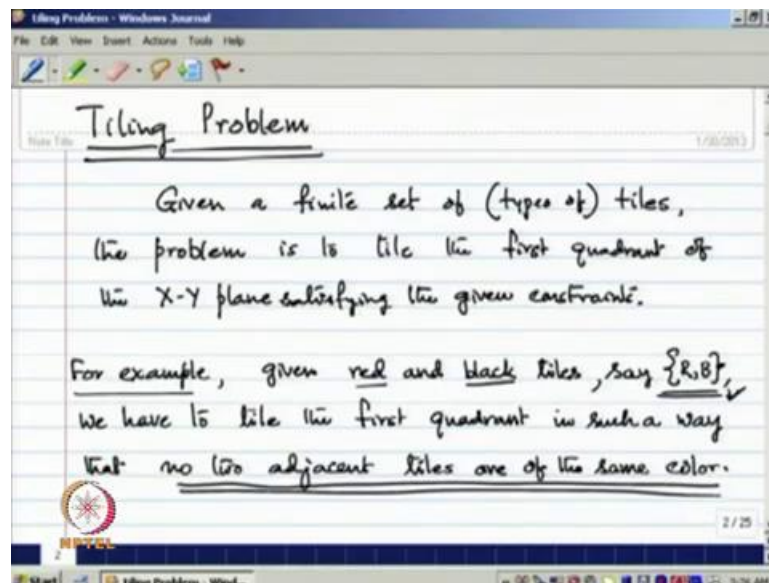 tiling Problem - Windows Journal
File Edit View Insert Actions Tools Help
Tiling Problem
Note Title
1/30/2013
Given a finite set of (types of) tiles,
the problem is to tile the first quadrant of
the X-Y plane satisfying the given constraints.
For example, given red and black tiles, say {R,B},
we have to tile the first quadrant in such a way
that no two adjacent tiles are of the same color.
NPTEL
2/25
2
Start
tiling Problem - Wind...